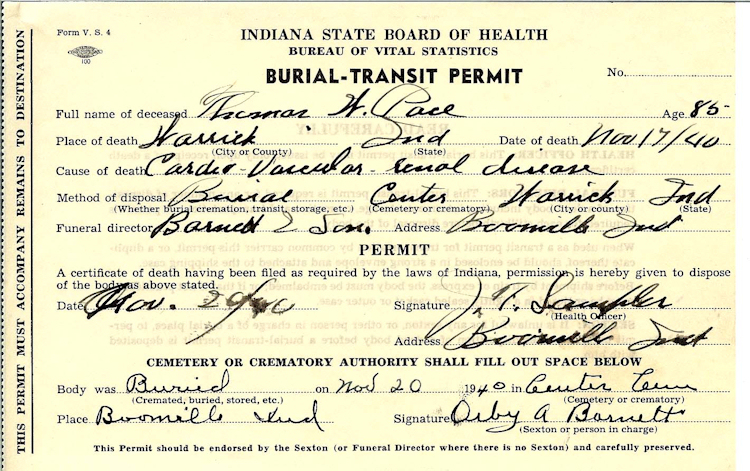 Form V. S. 4
100
INDIANA STATE BOARD OF HEALTH
BUREAU OF VITAL STATISTICS
BURIAL-TRANSIT PERMIT
No.
Full name of deceased Thomas W. Pace Age 85
Place of death Warrick Ind Date of death Nov 17/40
(City or County) (State)
Cause of death Cardio-Vascular-renal disease
Method of disposal Burial Center Warrick Ind
(Whether burial cremation, transit, storage, etc.) (Cemetery or crematory) (City or county) (State)
Funeral director Barnett & Son. Address Boonville Ind
PERMIT
A certificate of death having been filed as required by the laws of Indiana, permission is hereby given to dispose
of the body as above stated.
Date Nov. 20/40 Signature J. T. Samples
(Health Officer)
Address Boonville Ind
CEMETERY OR CREMATORY AUTHORITY SHALL FILL OUT SPACE BELOW
Body was Buried on Nov 20 1940 in Center Cem
(Cremated, buried, stored, etc.) (Cemetery or crematory)
Place Boonville Ind Signature Orby A Barnett
(Sexton or person in charge)
This Permit should be endorsed by the Sexton (or Funeral Director where there is no Sexton) and carefully preserved.
THIS PERMIT MUST ACCOMPANY REMAINS TO DESTINATION